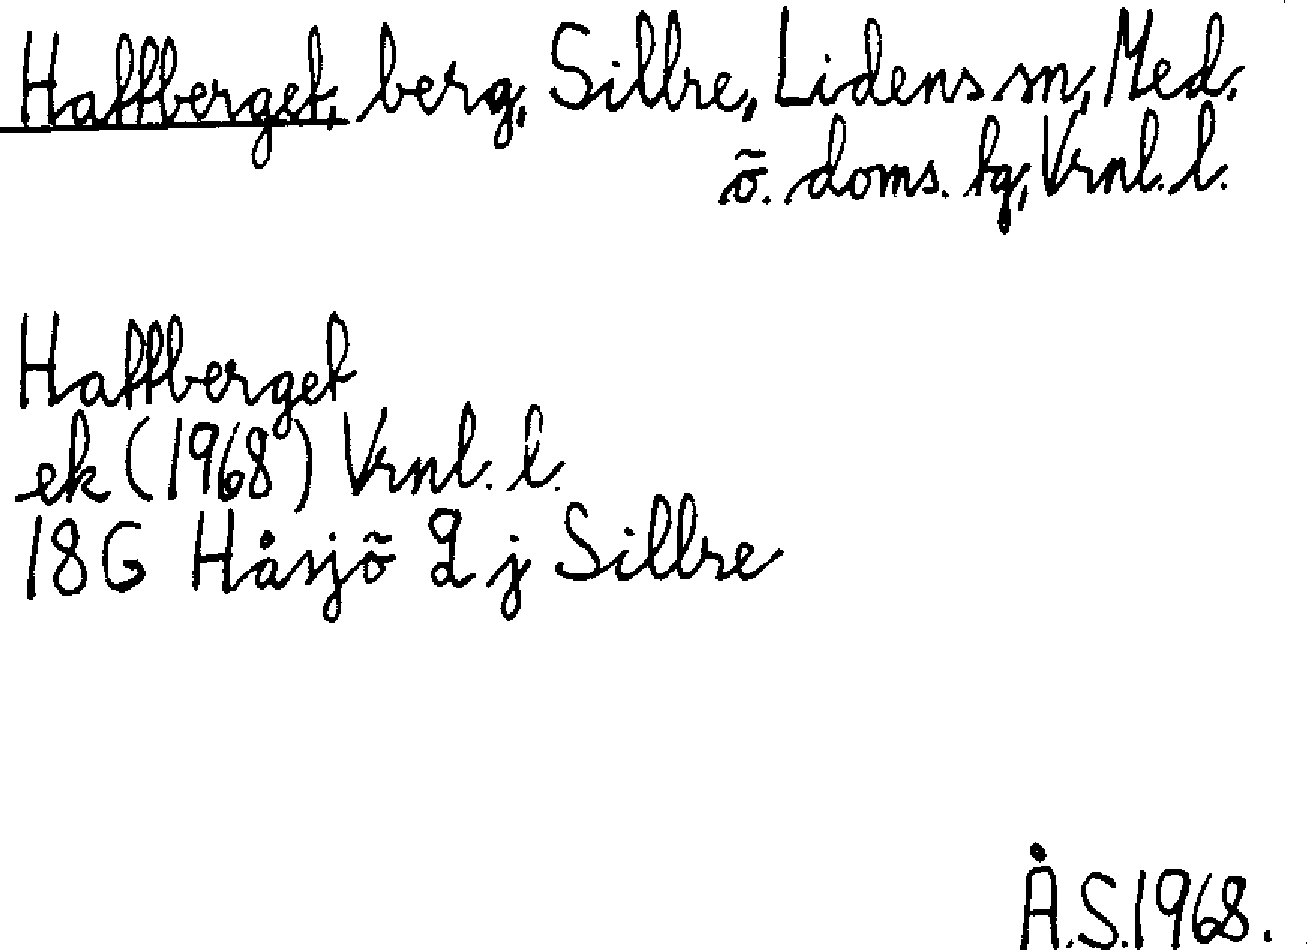 Hattberget, berg, Sillre, Lidens sn, Med.
ö. doms. tg, Vrnl. l.
Hattberget
ek (1968) Vrnl. l.
18G Håsjö 2 j Sillre
Å.S. 1968.